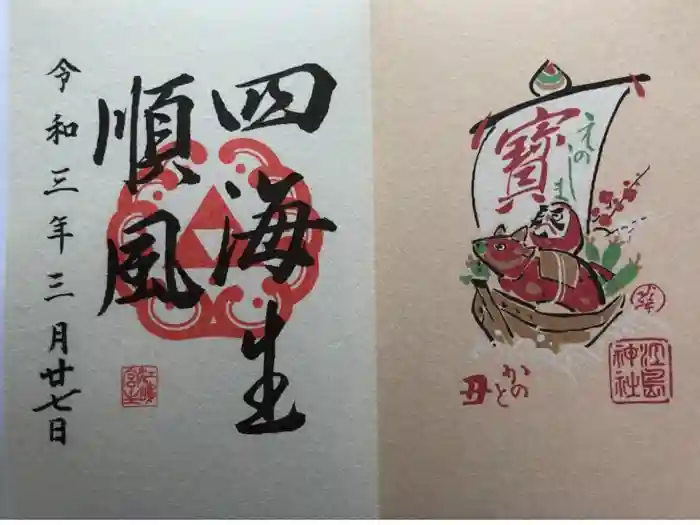 四海生
順風
令和三年三月廿七日
寳
えのしま
かのと
丑
江島
神社